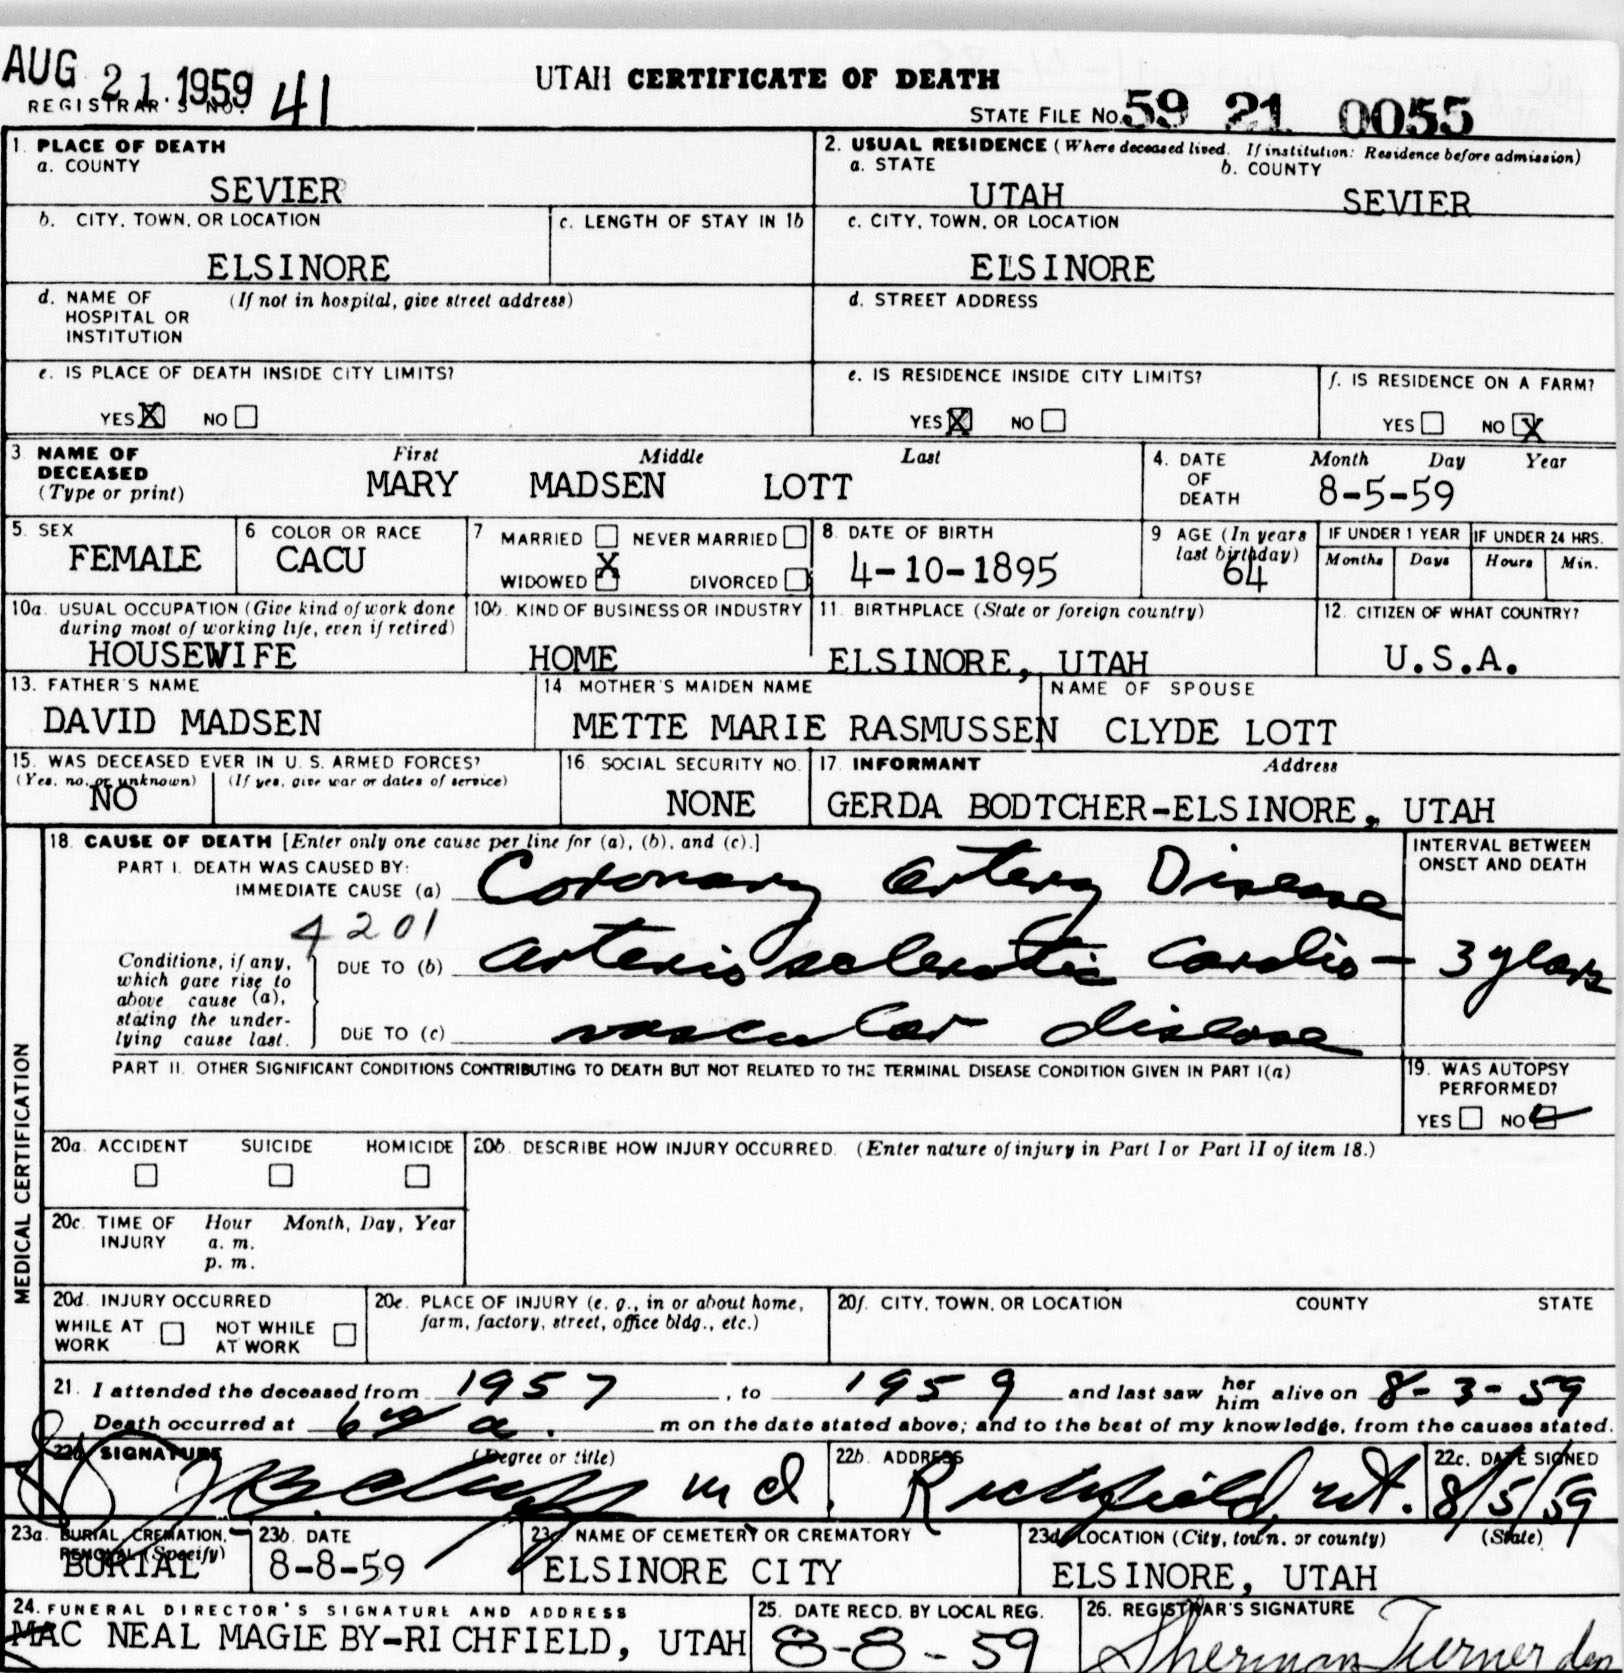 AUG 21 1959
UTAH CERTIFICATE OF DEATH
REGISTRAR'S NO. 41
STATE FILE NO. 59 21 0055
1. PLACE OF DEATH
a. COUNTY
SEVIER
2. USUAL RESIDENCE (Where deceased lived. If institution: Residence before admission)
a. STATE b. COUNTY
UTAH SEVIER
b. CITY, TOWN, OR LOCATION
ELSINORE
c. LENGTH OF STAY IN 1b
c. CITY, TOWN, OR LOCATION
ELSINORE
d. NAME OF HOSPITAL OR INSTITUTION (If not in hospital, give street address)
d. STREET ADDRESS
e. IS PLACE OF DEATH INSIDE CITY LIMITS?
YES X NO
e. IS RESIDENCE INSIDE CITY LIMITS?
YES X NO
f. IS RESIDENCE ON A FARM?
YES NO X
3. NAME OF DECEASED (Type or print)
First Middle Last
MARY MADSEN LOTT
4. DATE OF DEATH Month Day Year
8-5-59
5. SEX
FEMALE
6 COLOR OR RACE
CACU
7 MARRIED NEVER MARRIED
WIDOWED X DIVORCED
8. DATE OF BIRTH
4-10-1895
9 AGE (In years last birthday)
64
IF UNDER 1 YEAR
Months Days
IF UNDER 24 HRS.
Hours Min.
10a. USUAL OCCUPATION (Give kind of work done during most of working life, even if retired)
HOUSEWIFE
10b. KIND OF BUSINESS OR INDUSTRY
HOME
11. BIRTHPLACE (State or foreign country)
ELSINORE, UTAH
12. CITIZEN OF WHAT COUNTRY?
U.S.A.
13. FATHER'S NAME
DAVID MADSEN
14 MOTHER'S MAIDEN NAME
METTE MARIE RASMUSSEN
NAME OF SPOUSE
CLYDE LOTT
15. WAS DECEASED EVER IN U. S. ARMED FORCES?
(Yes, no, or unknown) (If yes, give war or dates of service)
NO
16. SOCIAL SECURITY NO.
NONE
17. INFORMANT Address
GERDA BODTCHER-ELSINORE, UTAH
MEDICAL CERTIFICATION
18. CAUSE OF DEATH [Enter only one cause per line for (a), (b), and (c).]
PART I. DEATH WAS CAUSED BY:
IMMEDIATE CAUSE (a) Coronary artery Disease
4201
Conditions, if any, which gave rise to above cause (a), stating the underlying cause last.
DUE TO (b) arterio sclerotic Cardio-
DUE TO (c) vascular disease
INTERVAL BETWEEN ONSET AND DEATH
3 years
PART II. OTHER SIGNIFICANT CONDITIONS CONTRIBUTING TO DEATH BUT NOT RELATED TO THE TERMINAL DISEASE CONDITION GIVEN IN PART I(a)
19. WAS AUTOPSY PERFORMED?
YES NO
20a. ACCIDENT SUICIDE HOMICIDE
20b. DESCRIBE HOW INJURY OCCURRED. (Enter nature of injury in Part I or Part II of item 18.)
20c. TIME OF INJURY Hour Month, Day, Year
a. m.
p. m.
20d. INJURY OCCURRED
WHILE AT WORK NOT WHILE AT WORK
20e. PLACE OF INJURY (e. g., in or about home, farm, factory, street, office bldg., etc.)
20f. CITY, TOWN, OR LOCATION COUNTY STATE
21. I attended the deceased from 1957, to 1959 and last saw her him alive on 8-3-59
Death occurred at 6 00 a. m on the date stated above; and to the best of my knowledge, from the causes stated.
22a. SIGNATURE (Degree or title)
m d.
22b. ADDRESS
Richfield, Ut.
22c. DATE SIGNED
8/5/59
23a. BURIAL, CREMATION, REMOVAL (Specify)
BURIAL
23b. DATE
8-8-59
23c. NAME OF CEMETERY OR CREMATORY
ELSINORE CITY
23d. LOCATION (City, town, or county) (State)
ELSINORE, UTAH
24. FUNERAL DIRECTOR'S SIGNATURE AND ADDRESS
MAC NEAL MAGLEBY-RICHFIELD, UTAH
25. DATE RECD. BY LOCAL REG.
8-8-59
26. REGISTRAR'S SIGNATURE
Sherman Turner dep